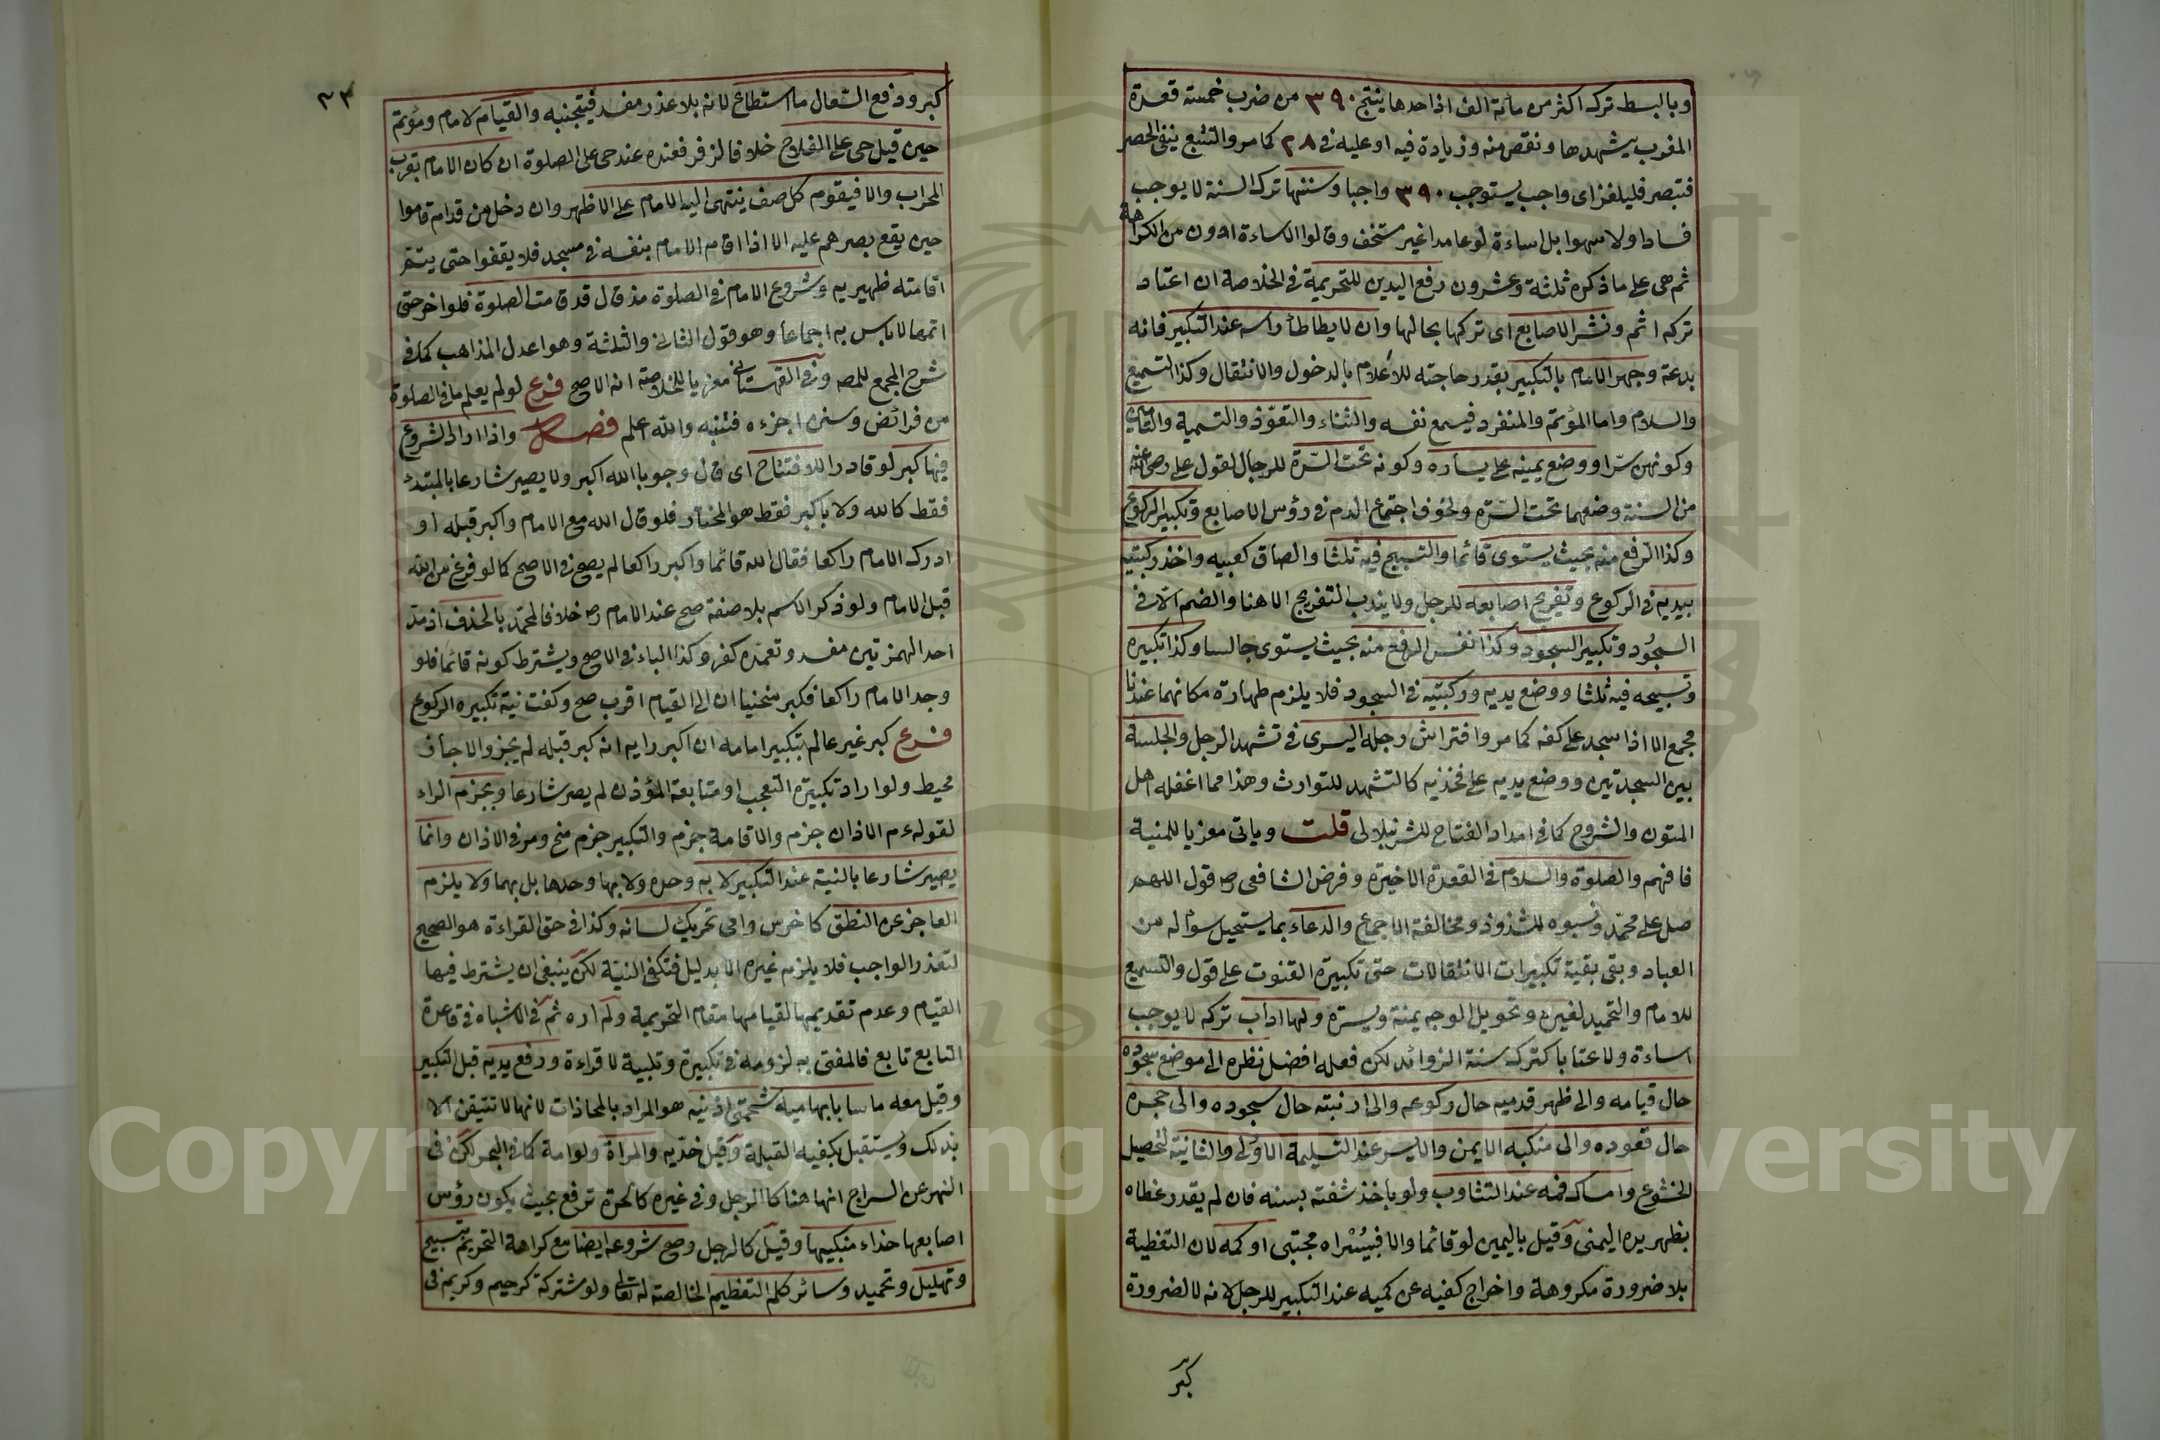 وبالبسط تركه اكثر من مائة الف اذ احدها ينتج ٣٩٠ من ضرب خمسة قعدة
المغرب بتشهدها ونقص منه وزيادة فيه او عليه في ٢٨ كما مر والتتبع ينفي الحصر
فتبصر فليلغز اى واجب يستوجب ٣٩٠ واجبا وسننها ترك السنة لا يوجب
فسادا ولا سهوا بل اساءة لو عامدا غير مستخف وقالوا الاساءة ادون من الكراهة
ثم هى على ما ذكره ثلثة وعشرون رفع اليدين للتحريمة في الخلاصة ان اعتاد
تركه اثم ونشر الاصابع اى تركها بحالها وان لا يطاطأ راسه عند التكبير فانه
بدعة وجهر الامام بالتكبير بقدر حاجته للأعلام بالدخول والانتقال وكذا التسميع
والسلام واما المؤتم والمنفرد فيسمع نفسه والثناء والتعوّذ والتسمية والتامين
وكونهن سرّا ووضع يمينه على يساره وكونه تحت السّرة للرجال لقول على رضى الله عنه
من السنة وضعهما تحت السّرة ولخوف اجتماع الدم في رؤس الاصابع وتكبير الركوع
وكذا الرفع منه بحيث يستوى قائما والتسبيح فيه ثلثا والصاق كعبيه واخذ ركبتيه
بيديه في الركوع وتفريج اصابعه للرجل ولا يندب التفريج الا هنا والضم الا في
السجود وتكبير السجود وكذا نفس الرفع منه بحيث يستوى جالسا وكذا تكبيره
وتسبيحه فيه ثلثا ووضع يديه وركبتيه في السجود فلا يلزم طهارة مكانهما عندنا
مجمع الا اذا سجد على كفه كما مر وافتراش رجله اليسرى في تشهد الرجل والجلسة
بين السجدتين ووضع يديه على فخذيه كالتشهد للتوارث وهذا مما اغفله اهل
المتون والشروح كما في امداد الفتاح للشرنبلالى قلت وياتى معزيا للمنية
فافهم والصلوة والسلام في القعدة الاخيرة وفرض الشافعى رح قول اللهم
صل على محمّد ونسبوه للشذوذ ومخالفة الاجماع والدعاء بما يستحيل سؤاله من
العباد وبقى بقية تكبيرات الانتقالات حتى تكبيرة القنوت على قول والتسميع
للامام والتحميد لغيره وتحويل الوجه يمنة ويسرة ولها اداب تركه لا يوجب
اساءة ولا عتابا كترك سنة الزوائد لكن فعله افضل نظره الى موضع سجوده
حال قيامه والى ظهر قدميه حال ركوعه والى ارنبته حال سجوده والى حجره
حال قعوده والى منكبه الايمن والايسر عند التسليمة الاولى والثانية لتحصيل
الخشوع وامساك فمه عند التثاوب ولو باخذ شفته بسنه فان لم يقدر غطاه
بظهر يده اليمنى وقيل باليمين لو قائما والا فبيُسْراه مجتبى او كمه لان التغطية
بلا ضرورة مكروهة واخراج كفيه عن كميه عند التكبير للرجل لانه لا لضرورة
كبر
٣٣
كبرو دفع السّعال ما استطاع لانه بلا عذر مفسد فيتجنبه والقيام لامام ومؤتم
حين قيل حى على الفلاح خلافا لزفر فعنده عند حى على الصلوة ان كان الامام بقرب
المحراب والا فيقوم كل صف ينتهى اليه الامام على الاظهر وان دخل من قدام قاموا
حين يقع بصرهم عليه الا اذا اقام الامام بنفسه في مسجد فلا يقفوا حتى يتم
اقامته ظهيريه وشروع الامام في الصلوة مذ قال قد قامت الصلوة فلو اخر حتى
اتمها لا باس به اجماعا وهو قول الثانى والثلثة وهو اعدل المذاهب كما في
شرح المجمع للمصه وفى القهستانى معزيا للخلاصة انه الاصح فرع لو لم يعلم ما في الصلوة
من فرائض وسنن اجزءه قنيه والله اعلم فصل واذا اراد الشروع
فيها كبر لو قادرا للافتتاح اى قال وجوبا الله اكبر ولا يصير شارعا بالمبتدء
فقط كالله ولا باكبر فقط هو المختار فلو قال الله مع الامام واكبر قبله او
ادرك الامام راكعا فقال الله قائما واكبر راكعا لم يصح في الاصح كما لو فرغ من الله
قبل الامام ولو ذكر الاسم بلا صفة صح عند الامام رح خلافا لمحمّد بالحذف اذ مد
احد الهمزتين مفسد وتعمّده كفر وكذا الباء في الاصح ويشترط كونه قائما فلو
وجد الامام راكعا فكبر منحنيا ان الى القيام اقرب صح وكفت نية تكبيره الركوع
فرع كبر غير عالم بتكبير امامه ان اكبر رايه انه كبر قبله لم يجز والا جاز
محيط ولو اراد تكبيرة التعجب او متابعة المؤذن لم يصر شارعا ويجزم الراء
لقولهءم الاذان جزم والاقامة جزم والتكبير جزم منح ومر في الاذان وانما
يصير شارعا بالنية عند التكبير لا به وحده ولا بها وحدها بل بهما ولا يلزم
العاجز عن النطق كاخرس وامى تحريك لسانه وكذا في حق القراءة هو الصحيح
لتعذر الواجب فلا يلزم غيره الا بدليل فتكفى النيّة لكن ينبغى ان يشترط فيها
القيام وعدم تقديمها لقيامها مقام التحريمة ولم اره ثم في الاشباه في قاعدة
التابع تابع فالمفتى به لزومه في تكبيرة وتلبية لا قراءة ورفع يديه قبل التكبير
وقيل معه ماسا بابهاميه شحمتى اذنيه هو المراد بالمحاذات لانها لا تتيقن الا
بذلك ويستقبل بكفيه القبلة وقيل خدّيه والمراة ولو امة كما في البحر لكن في
النهر عن السراج انها هنا كالرجل وفى غيره كالحرة ترفع بحيث يكون رؤس
اصابعها حذاء منكبيها وقيل كالرجل وصح شروعه ايضا مع كراهة التحريم بتسبيح
وتهليل وتحميد وسائر كلم التعظيم الخالصة له تعالى ولو مشتركة كرحيم وكريم في
Copyright © King Saud University